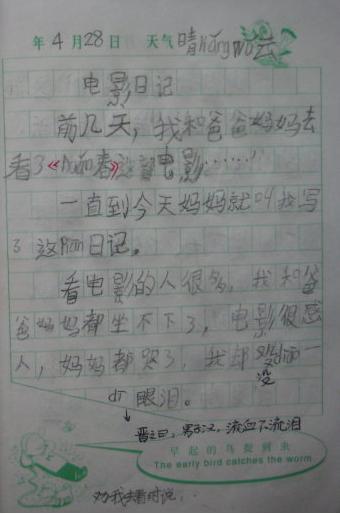 年4月28日 天气晴
电影日记
前几天，我和爸爸妈妈去
看了《 春 电影……！
一直到今天妈妈就叫我写
了这pian日记。
看电影的人很多，我和爸
爸妈妈都坐不下了，电影很感
人，妈妈都哭了，我却没 一
di眼泪。
晋之曰，男子汉，流血不流泪
早起的鸟捉到虫
The early bird catches the worm
我去看时说：